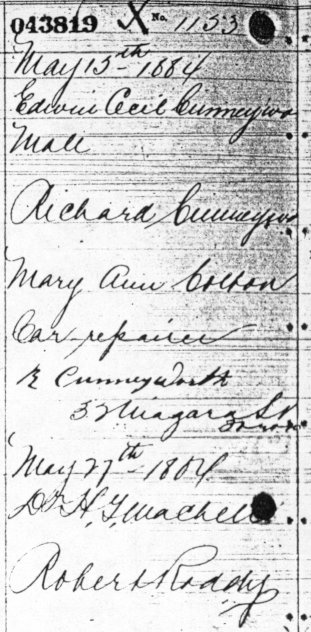 043819 X No. 1153
May 15th 1884
Edwin Cecil Cunneywo
Male
Richard Cunneywo
Mary Ann Colton
Car repairer
R Cunneyworth
3 Niagara St
May 27th 1884
Dr H. T. Machell
Robert Roddy